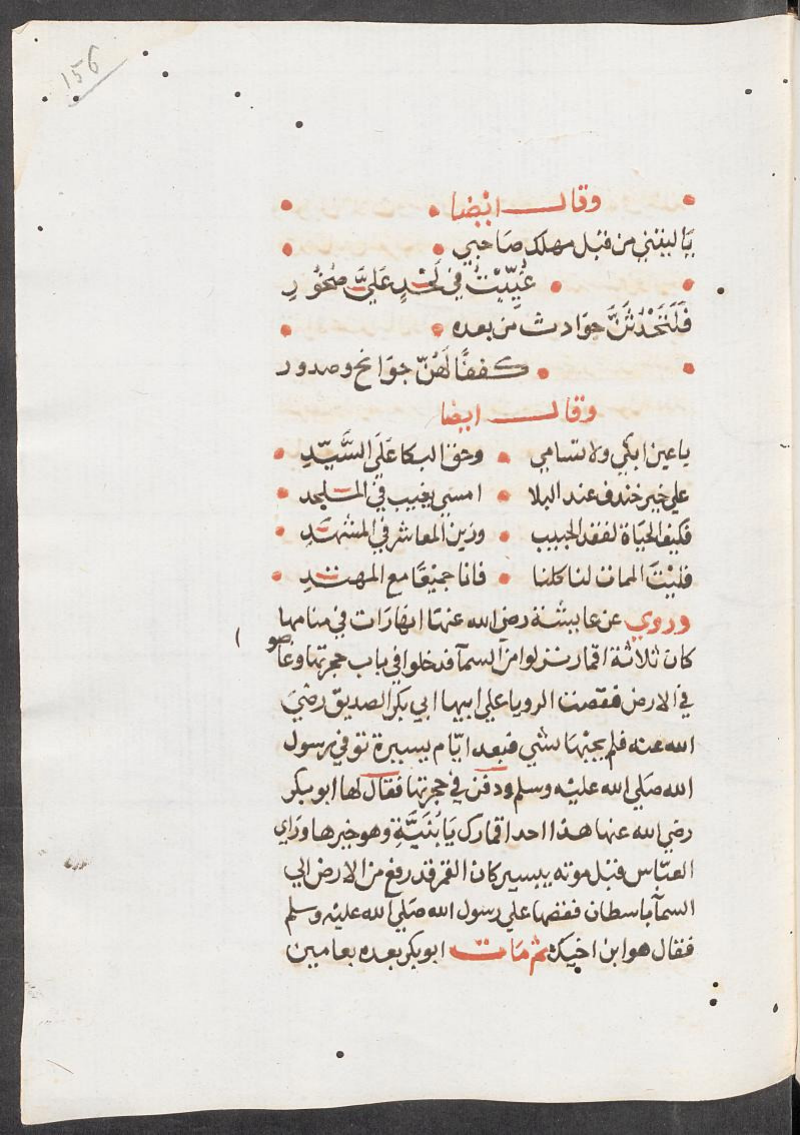 156
وقال ايضا
ياليتني من قبل مهلك صاحبي
غُيِّبْتُ في لَحْدٍ عَلَيَّ صُخُورِ
فَلَتَحْدُثَنَّ حوَادث من بعده
كففًا لَهُنّ جوَانح وصدور
وقال ايضا
ياعين ابكي ولا تسامي • وحق البكا عَلَي السَّيّدِ
علي خير خندف عند البلا • امسي يغيب في الملحد
فكيف الحيَاة لفقد الحبيب • وزين المعاشر في المشهدِ
فليْتَ الممات لنا كلنا • فانا جميْعًا مع المهتدِ
وروي عن عايشة رضي الله عنهَا انها رَات في منامها
كان ثلاثة اقمار نزلوا من السمآ فدخلوا في باب حجرتها وغاصو
في الارض فقصت الرويا علي ابيها ابي بكر الصديق رضيَ
الله عنه فلم يجبهَا بشي فبعد ايّام يسيرة توفي رسول
الله صَلي الله عليْه وسلم ودفن في حجرتها فقال لها ابو بكر
رضي الله عنها هذا احد اقمارك يَا بُنَيَّةِ وهو خيرها ورَاي
العبّاس قبْل موته بيسير كان القمر قد رفع من الارض الي
السمآ باسطان فقصها علي رسول الله صَلي الله عليْه وسلم
فقال هو ابن اخيك ثم مَات ابو بكر بعده بعامين